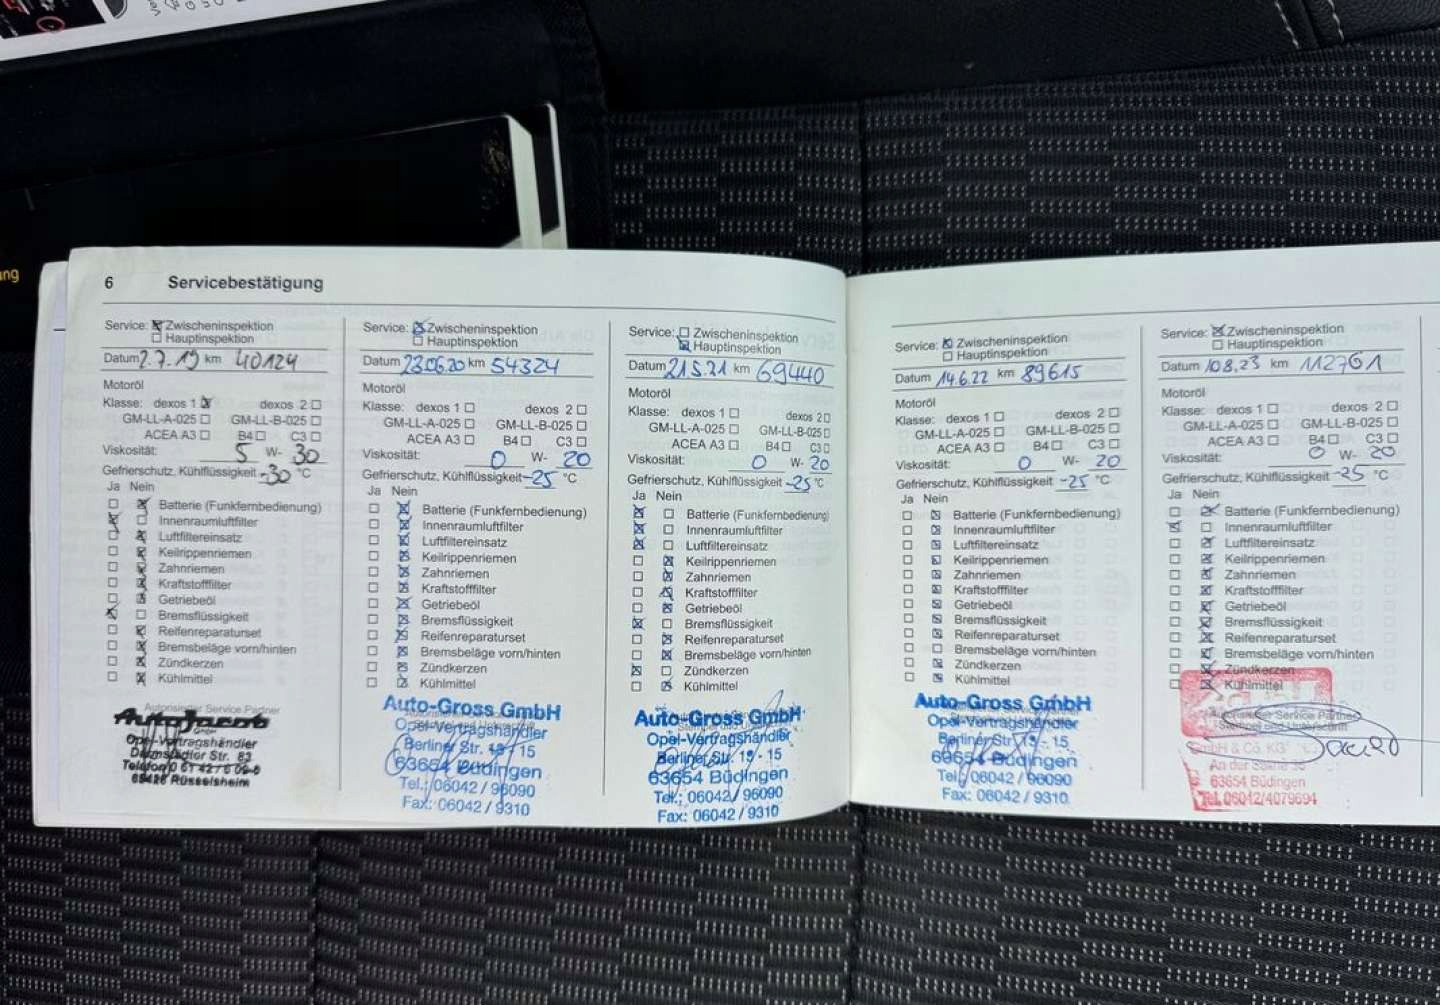 ung
6 Servicebestätigung
Service: ☒ Zwischeninspektion
☐ Hauptinspektion
Datum 2.7.19 km 40124
Motoröl
Klasse: dexos 1 ☒ dexos 2 ☐
GM-LL-A-025 ☐ GM-LL-B-025 ☐
ACEA A3 ☐ B4 ☐ C3 ☐
Viskosität: 5 W- 30
Gefrierschutz, Kühlflüssigkeit -30 °C
Ja Nein
☐ ☒ Batterie (Funkfernbedienung)
☒ ☐ Innenraumluftfilter
☐ ☒ Luftfiltereinsatz
☐ ☒ Keilrippenriemen
☐ ☒ Zahnriemen
☐ ☒ Kraftstofffilter
☐ ☒ Getriebeöl
☒ ☐ Bremsflüssigkeit
☐ ☒ Reifenreparaturset
☐ ☒ Bremsbeläge vorn/hinten
☐ ☒ Zündkerzen
☐ ☒ Kühlmittel
Autorisierter Service Partner
Auto Jacob
GmbH
Opel-Vertragshändler
Darmstädter Str. 83
65428 Rüsselsheim
Service: ☒ Zwischeninspektion
☐ Hauptinspektion
Datum 23.06.20 km 54324
Motoröl
Klasse: dexos 1 ☐ dexos 2 ☐
GM-LL-A-025 ☐ GM-LL-B-025 ☐
ACEA A3 ☐ B4 ☐ C3 ☐
Viskosität: 0 W- 20
Gefrierschutz, Kühlflüssigkeit -25 °C
Ja Nein
☐ ☒ Batterie (Funkfernbedienung)
☐ ☒ Innenraumluftfilter
☐ ☒ Luftfiltereinsatz
☐ ☒ Keilrippenriemen
☐ ☒ Zahnriemen
☐ ☒ Kraftstofffilter
☐ ☒ Getriebeöl
☐ ☒ Bremsflüssigkeit
☐ ☒ Reifenreparaturset
☐ ☒ Bremsbeläge vorn/hinten
☐ ☒ Zündkerzen
☐ ☒ Kühlmittel
Auto-Gross GmbH
Opel-Vertragshändler
Berliner Str. 13 - 15
63654 Büdingen
Tel.: 06042 / 96090
Fax: 06042 / 9310
Service: ☐ Zwischeninspektion
☒ Hauptinspektion
Datum 21.5.21 km 69440
Motoröl
Klasse: dexos 1 ☐ dexos 2 ☐
GM-LL-A-025 ☐ GM-LL-B-025 ☐
ACEA A3 ☐ B4 ☐ C3 ☐
Viskosität: 0 W- 20
Gefrierschutz, Kühlflüssigkeit -25 °C
Ja Nein
☒ ☐ Batterie (Funkfernbedienung)
☒ ☐ Innenraumluftfilter
☒ ☐ Luftfiltereinsatz
☐ ☒ Keilrippenriemen
☐ ☒ Zahnriemen
☐ ☒ Kraftstofffilter
☐ ☒ Getriebeöl
☒ ☐ Bremsflüssigkeit
☐ ☒ Reifenreparaturset
☐ ☒ Bremsbeläge vorn/hinten
☒ ☐ Zündkerzen
☐ ☒ Kühlmittel
Auto-Gross GmbH
Opel-Vertragshändler
Berliner Str. 13 - 15
63654 Büdingen
Tel.: 06042 / 96090
Fax: 06042 / 9310
Service: ☒ Zwischeninspektion
☐ Hauptinspektion
Datum 14.6.22 km 89615
Motoröl
Klasse: dexos 1 ☐ dexos 2 ☐
GM-LL-A-025 ☐ GM-LL-B-025 ☐
ACEA A3 ☐ B4 ☐ C3 ☐
Viskosität: 0 W- 20
Gefrierschutz, Kühlflüssigkeit -25 °C
Ja Nein
☐ ☒ Batterie (Funkfernbedienung)
☐ ☒ Innenraumluftfilter
☐ ☒ Luftfiltereinsatz
☐ ☒ Keilrippenriemen
☐ ☒ Zahnriemen
☐ ☒ Kraftstofffilter
☐ ☒ Getriebeöl
☐ ☒ Bremsflüssigkeit
☐ ☒ Reifenreparaturset
☐ ☐ Bremsbeläge vorn/hinten
☐ ☒ Zündkerzen
☐ ☒ Kühlmittel
Auto-Gross GmbH
Opel-Vertragshändler
Berliner Str. 13 - 15
63654 Büdingen
Tel.: 06042 / 96090
Fax: 06042 / 9310
Service: ☒ Zwischeninspektion
☐ Hauptinspektion
Datum 10.8.23 km 112761
Motoröl
Klasse: dexos 1 ☐ dexos 2 ☐
GM-LL-A-025 ☐ GM-LL-B-025 ☐
ACEA A3 ☐ B4 ☐ C3 ☐
Viskosität: 0 W- 20
Gefrierschutz, Kühlflüssigkeit -25 °C
Ja Nein
☐ ☒ Batterie (Funkfernbedienung)
☒ ☐ Innenraumluftfilter
☐ ☒ Luftfiltereinsatz
☐ ☒ Keilrippenriemen
☐ ☒ Zahnriemen
☐ ☒ Kraftstofffilter
☐ ☒ Getriebeöl
☐ ☒ Bremsflüssigkeit
☐ ☒ Reifenreparaturset
☐ ☒ Bremsbeläge vorn/hinten
☐ ☒ Zündkerzen
☐ ☒ Kühlmittel
Autorisierter Service Partner
Stempel und Unterschrift
GmbH & Co. KG
63654 Büdingen
Tel. 06042/4079694